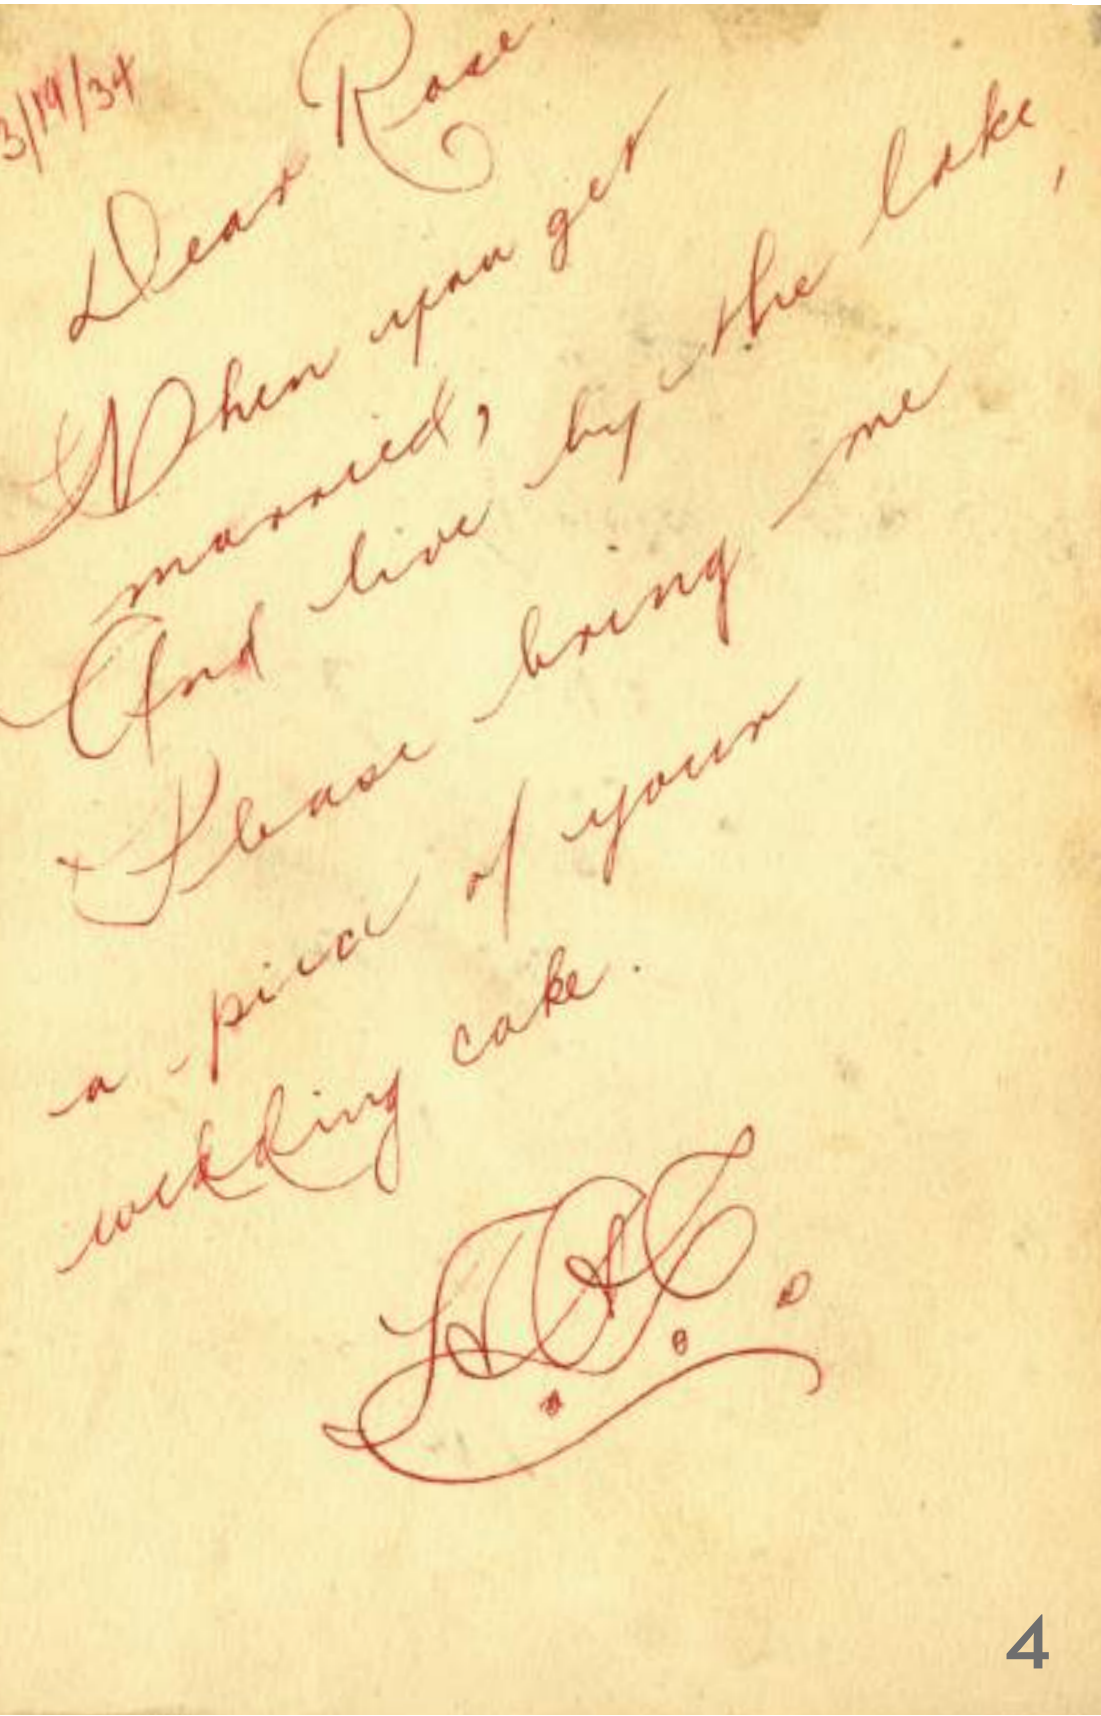 3/19/34
Dear Rose
When you get
married,
And live by the lake,
Please bring me
a piece of your
wedding cake.
4